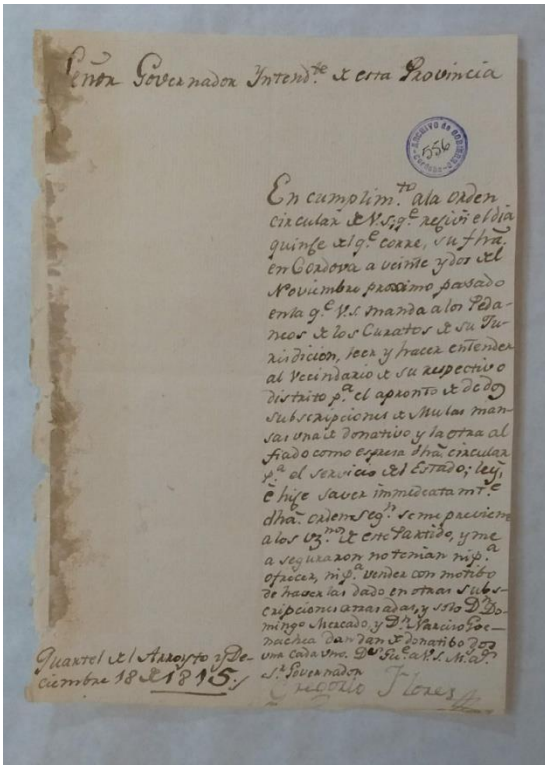 Señor Governador Yntend.te de esta Provincia
ARCHIVO DE GOBIERNO
556
En cumplim.to a la orden
circular de V.S. q.e resivi el dia
quinse del q.e corre, su fha.
en Cordova a veinte y dos del
Noviembre proximo pasado
en la q.e V.S. manda a los Peda-
neos de los Curatos de su Ju-
risdicion, leer y hacer entender
al Vecindario de su respectivo
distrito p.a el apronto de dos
subscripciones de Mulas man-
sas una de donativo y la otra al
fiado como espresa dha. circular
p.a el servicio del Estado; ley,
e hise saver immediatamt.e
dha. orden seg.n se me previene
a los vz.nos de este Partido, y me
aseguraron no tenian ni p.a
ofrecer, ni p.a vender con motibo
de haverlas dado en otras subs-
cripciones atrasadas, y solo D.n Do-
mingo Mercado, y D.n Narciso Goe-
nachea dan de donatibo dos
una cada uno. D.s Gu.e a V.S. M. a.s
S.r Governador
Quartel del Arroyto y De-
ciembre 18 de 1815.
Gregorio Flores